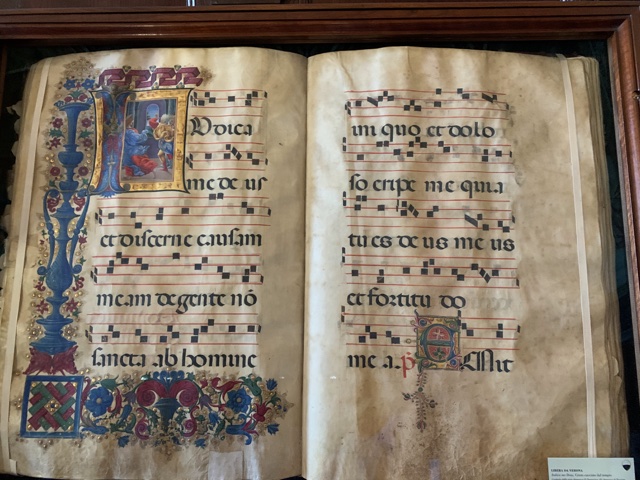 Iudica
me de us
et discerne causam
meam de gente nō
sancta ab homine
ini quo et dolo
so eripe me quia
tu es de us me us
et fortitu do
me a. p̄ Emit
LIBERALE DA VERONA